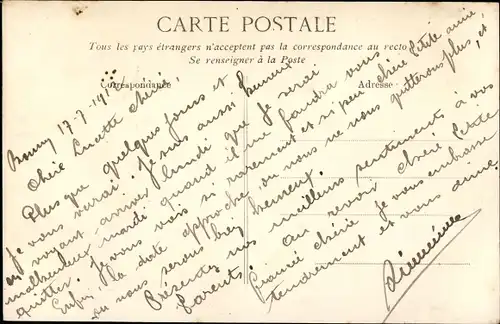 CARTE POSTALE
Tous les pays étrangers n'acceptent pas la correspondance au recto
Se renseigner à la Poste
Correspondance
Adresse
17-7-191
Chère Lucette chérie,
Plus que quelques jours et
je vous verrai. Je suis aussi heureux
en voyant arriver lundi que je serai
malheureux mardi quand il me faudra vous
quitter. Je vous vois si rarement et si peu chère petite amie,
Enfin, la date approche où nous ne nous quitterons plus, et
où nous serons bien heureux.
Présentez mes meilleurs sentiments à vos
Parents.
Au revoir chère petite
fiancée chérie je vous embrasse
tendrement et vous aime.